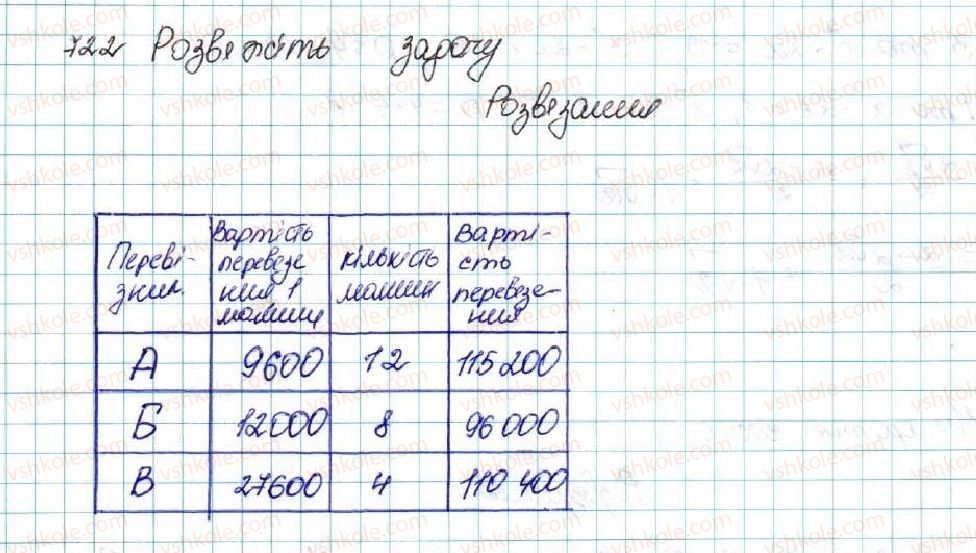 722 Розвяжіть задачу
Розвязання
Переві-
зник
Вартість
перевезе
ння 1
машини
кількість
машин
Варті-
сть
перевезе-
ння
А 9600 12 115 200
Б 12000 8 96 000
В 27600 4 110 400